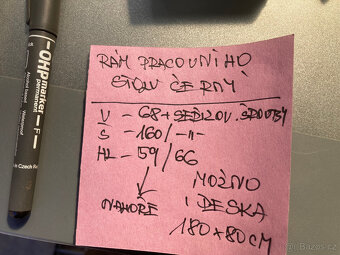 RÁM PRACOVNÍHO
STOLU ČERNÝ
V – 68 + SEŘIZOV. ŠROUBY
Š – 160 / – 11 –
HL – 59 / 66
NAHOŘE
MOŽNO
I DESKA
180 x 80 CM
OHP marker F
permanent
Bazos.cz